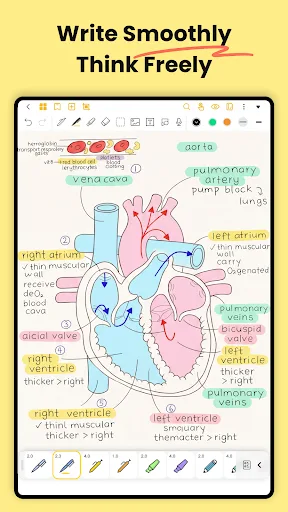 Write Smoothly
Think Freely
hemoglobin
transport respiratory
gases
red blood cell
erythrocytes
platelets
blood
clotting
①
aorta
vena cava
pulmonary
artery
pump block
lungs
②
left atrium
✓ thin muscular
wall
carry
Oxgenated
right atrium
✓ thin muscular
wall
receive
deO₂
blood
cava
③
aicial valve
pulmonary
veins
bicuspid
valve
④
right
ventricle
thicker > right
left
ventricle
thicker > right
pulmonary
veins
⑤
right ventricle
✓ thinl muscular
thicker > right
⑥
left ventricle
smoluary
themacter > right
2.0
2.3
4.0
1.0
4.0
4.0
2.0